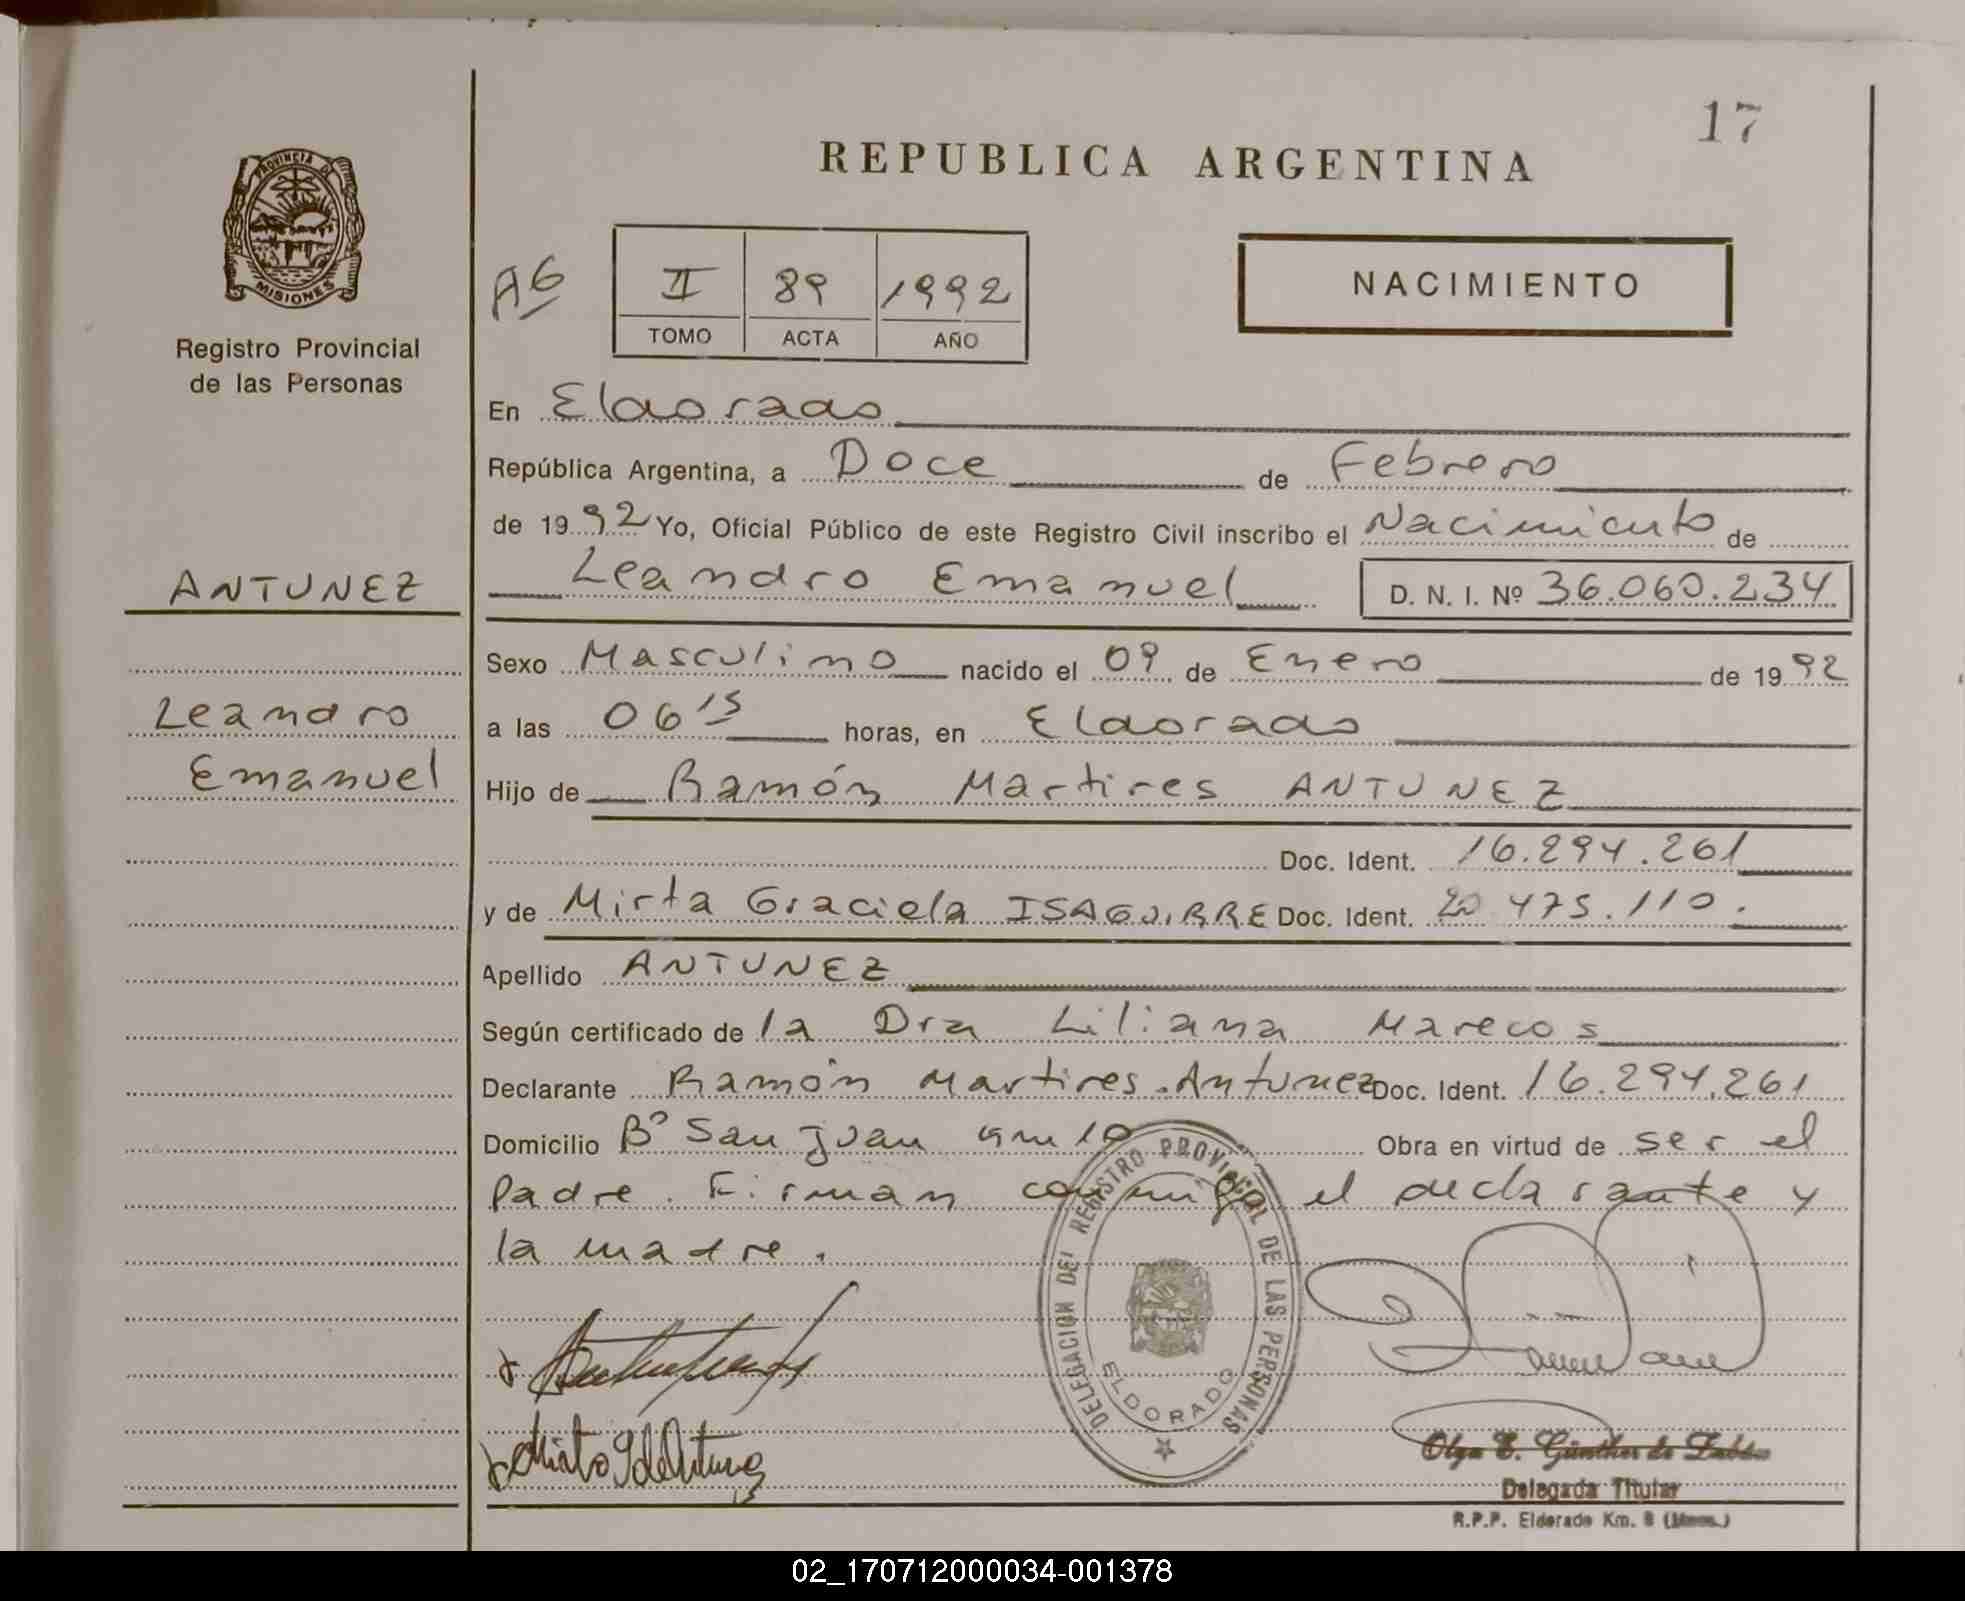 17
REPUBLICA ARGENTINA
PROVINCIA DE
MISIONES
Registro Provincial
de las Personas
A6
II 89 1992
TOMO ACTA AÑO
NACIMIENTO
En Eldorado
República Argentina, a Doce de Febrero
de 1992 Yo, Oficial Público de este Registro Civil inscribo el Nacimiento de
ANTUNEZ
Leandro Emanuel D. N. I. Nº 36.060.234
Sexo Masculino nacido el 09 de Enero de 1992
Leandro
a las 06 15 horas, en Eldorado
Emanuel
Hijo de Ramón Martires ANTUNEZ
Doc. Ident. 16.294.261
y de Mirta Graciela ISAGUIRRE Doc. Ident. 20 475.110.
Apellido ANTUNEZ
Según certificado de la Dra Liliana Marecos
Declarante Ramón Martires Antunez Doc. Ident. 16.294.261
Domicilio Bº San Juan km 10 Obra en virtud de ser el
padre. Firman conmigo el declarante y
la madre.
DELEGACION DEL REGISTRO PROVINCIAL DE LAS PERSONAS
ELDORADO
Olga E. Günther de
Delegada Titular
R.P.P. Eldorado Km. 8 (Mnes.)
02_170712000034-001378